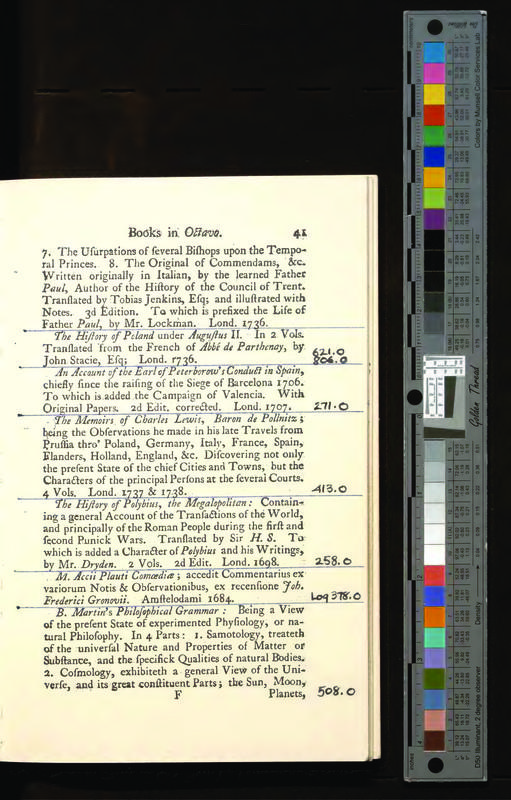 Books in Octavo. 41
7. The Uſurpations of ſeveral Biſhops upon the Tempo-
ral Princes. 8. The Original of Commendams, &c.
Written originally in Italian, by the learned Father
Paul, Author of the Hiſtory of the Council of Trent.
Tranſlated by Tobias Jenkins, Eſq; and illuſtrated with
Notes. 3d Edition. To which is prefixed the Life of
Father Paul, by Mr. Lockman. Lond. 1736.
The Hiſtory of Poland under Auguſtus II. In 2 Vols.
Tranſlated from the French of Abbé de Parthenay, by 621.0
John Stacie, Eſq; Lond. 1736. 806.0
An Account of the Earl of Peterborow's Conduct in Spain,
chiefly ſince the raiſing of the Siege of Barcelona 1706.
To which is added the Campaign of Valencia. With
Original Papers. 2d Edit. corrected. Lond. 1707. 271.0
The Memoirs of Charles Lewis, Baron de Pollnitz;
being the Obſervations he made in his late Travels from
Pruſſia thro' Poland, Germany, Italy, France, Spain,
Flanders, Holland, England, &c. Diſcovering not only
the preſent State of the chief Cities and Towns, but the
Characters of the principal Perſons at the ſeveral Courts.
4 Vols. Lond. 1737 & 1738. 413.0
The Hiſtory of Polybius, the Megalopolitan: Contain-
ing a general Account of the Tranſactions of the World,
and principally of the Roman People during the firſt and
ſecond Punick Wars. Tranſlated by Sir H. S. To
which is added a Character of Polybius and his Writings,
by Mr. Dryden. 2 Vols. 2d Edit. Lond. 1698. 258.0
M. Accii Plauti Comœdiæ; accedit Commentarius ex
variorum Notis & Obſervationibus, ex recenſione Joh.
Frederici Gronovii. Amſtelodami 1684. Log 378.0
B. Martin's Philoſophical Grammar: Being a View
of the preſent State of experimented Phyſiology, or na-
tural Philoſophy. In 4 Parts: 1. Samotology, treateth
of the univerſal Nature and Properties of Matter or
Subſtance, and the ſpecifick Qualities of natural Bodies.
2. Coſmology, exhibiteth a general View of the Uni-
verſe, and its great conſtituent Parts; the Sun, Moon,
F Planets, 508.0
Colors by Munsell Color Services Lab
Golden Thread
Density
D50 Illuminant, 2 degree observer